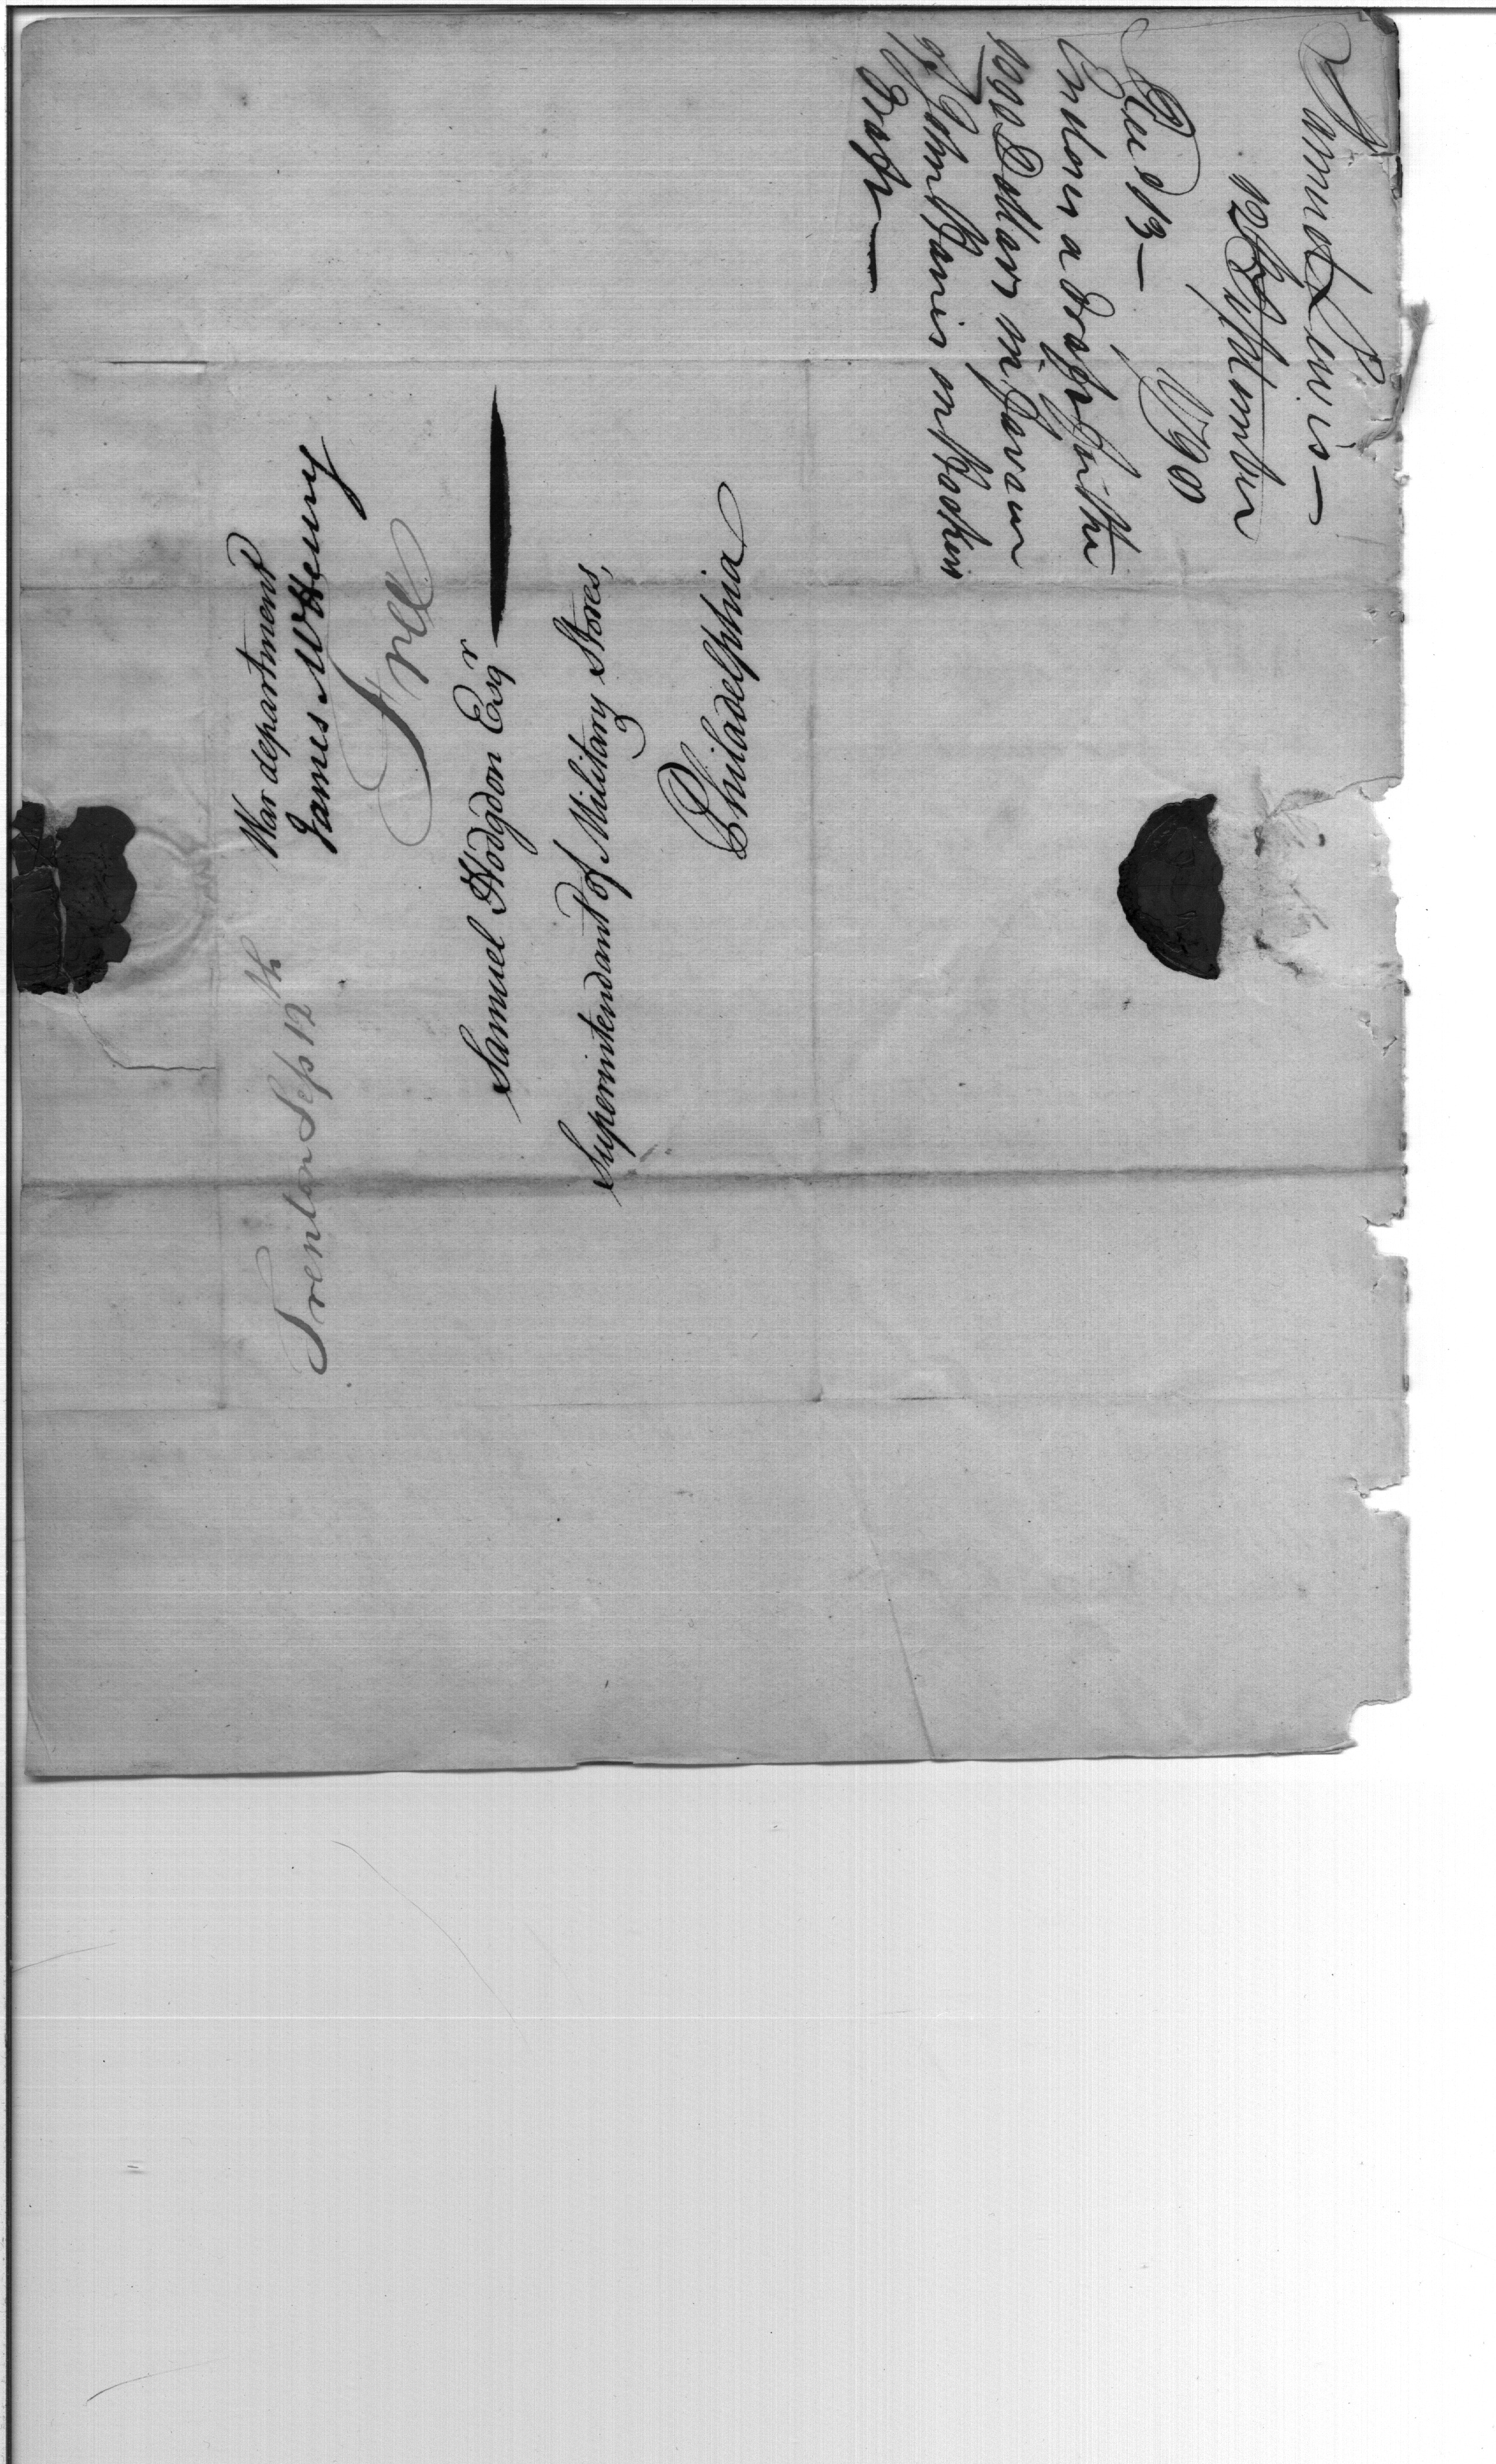 War department
James McHenry
Free
Trenton Sep 12th
Samuel Hodgdon Esqr
Superintendant of Military Stores,
Philadelphia
Samuel Lewis—
12 September
Recd 13—
Encloses a draft for the
1000 Dollars in favour
of John Harris on
draft—